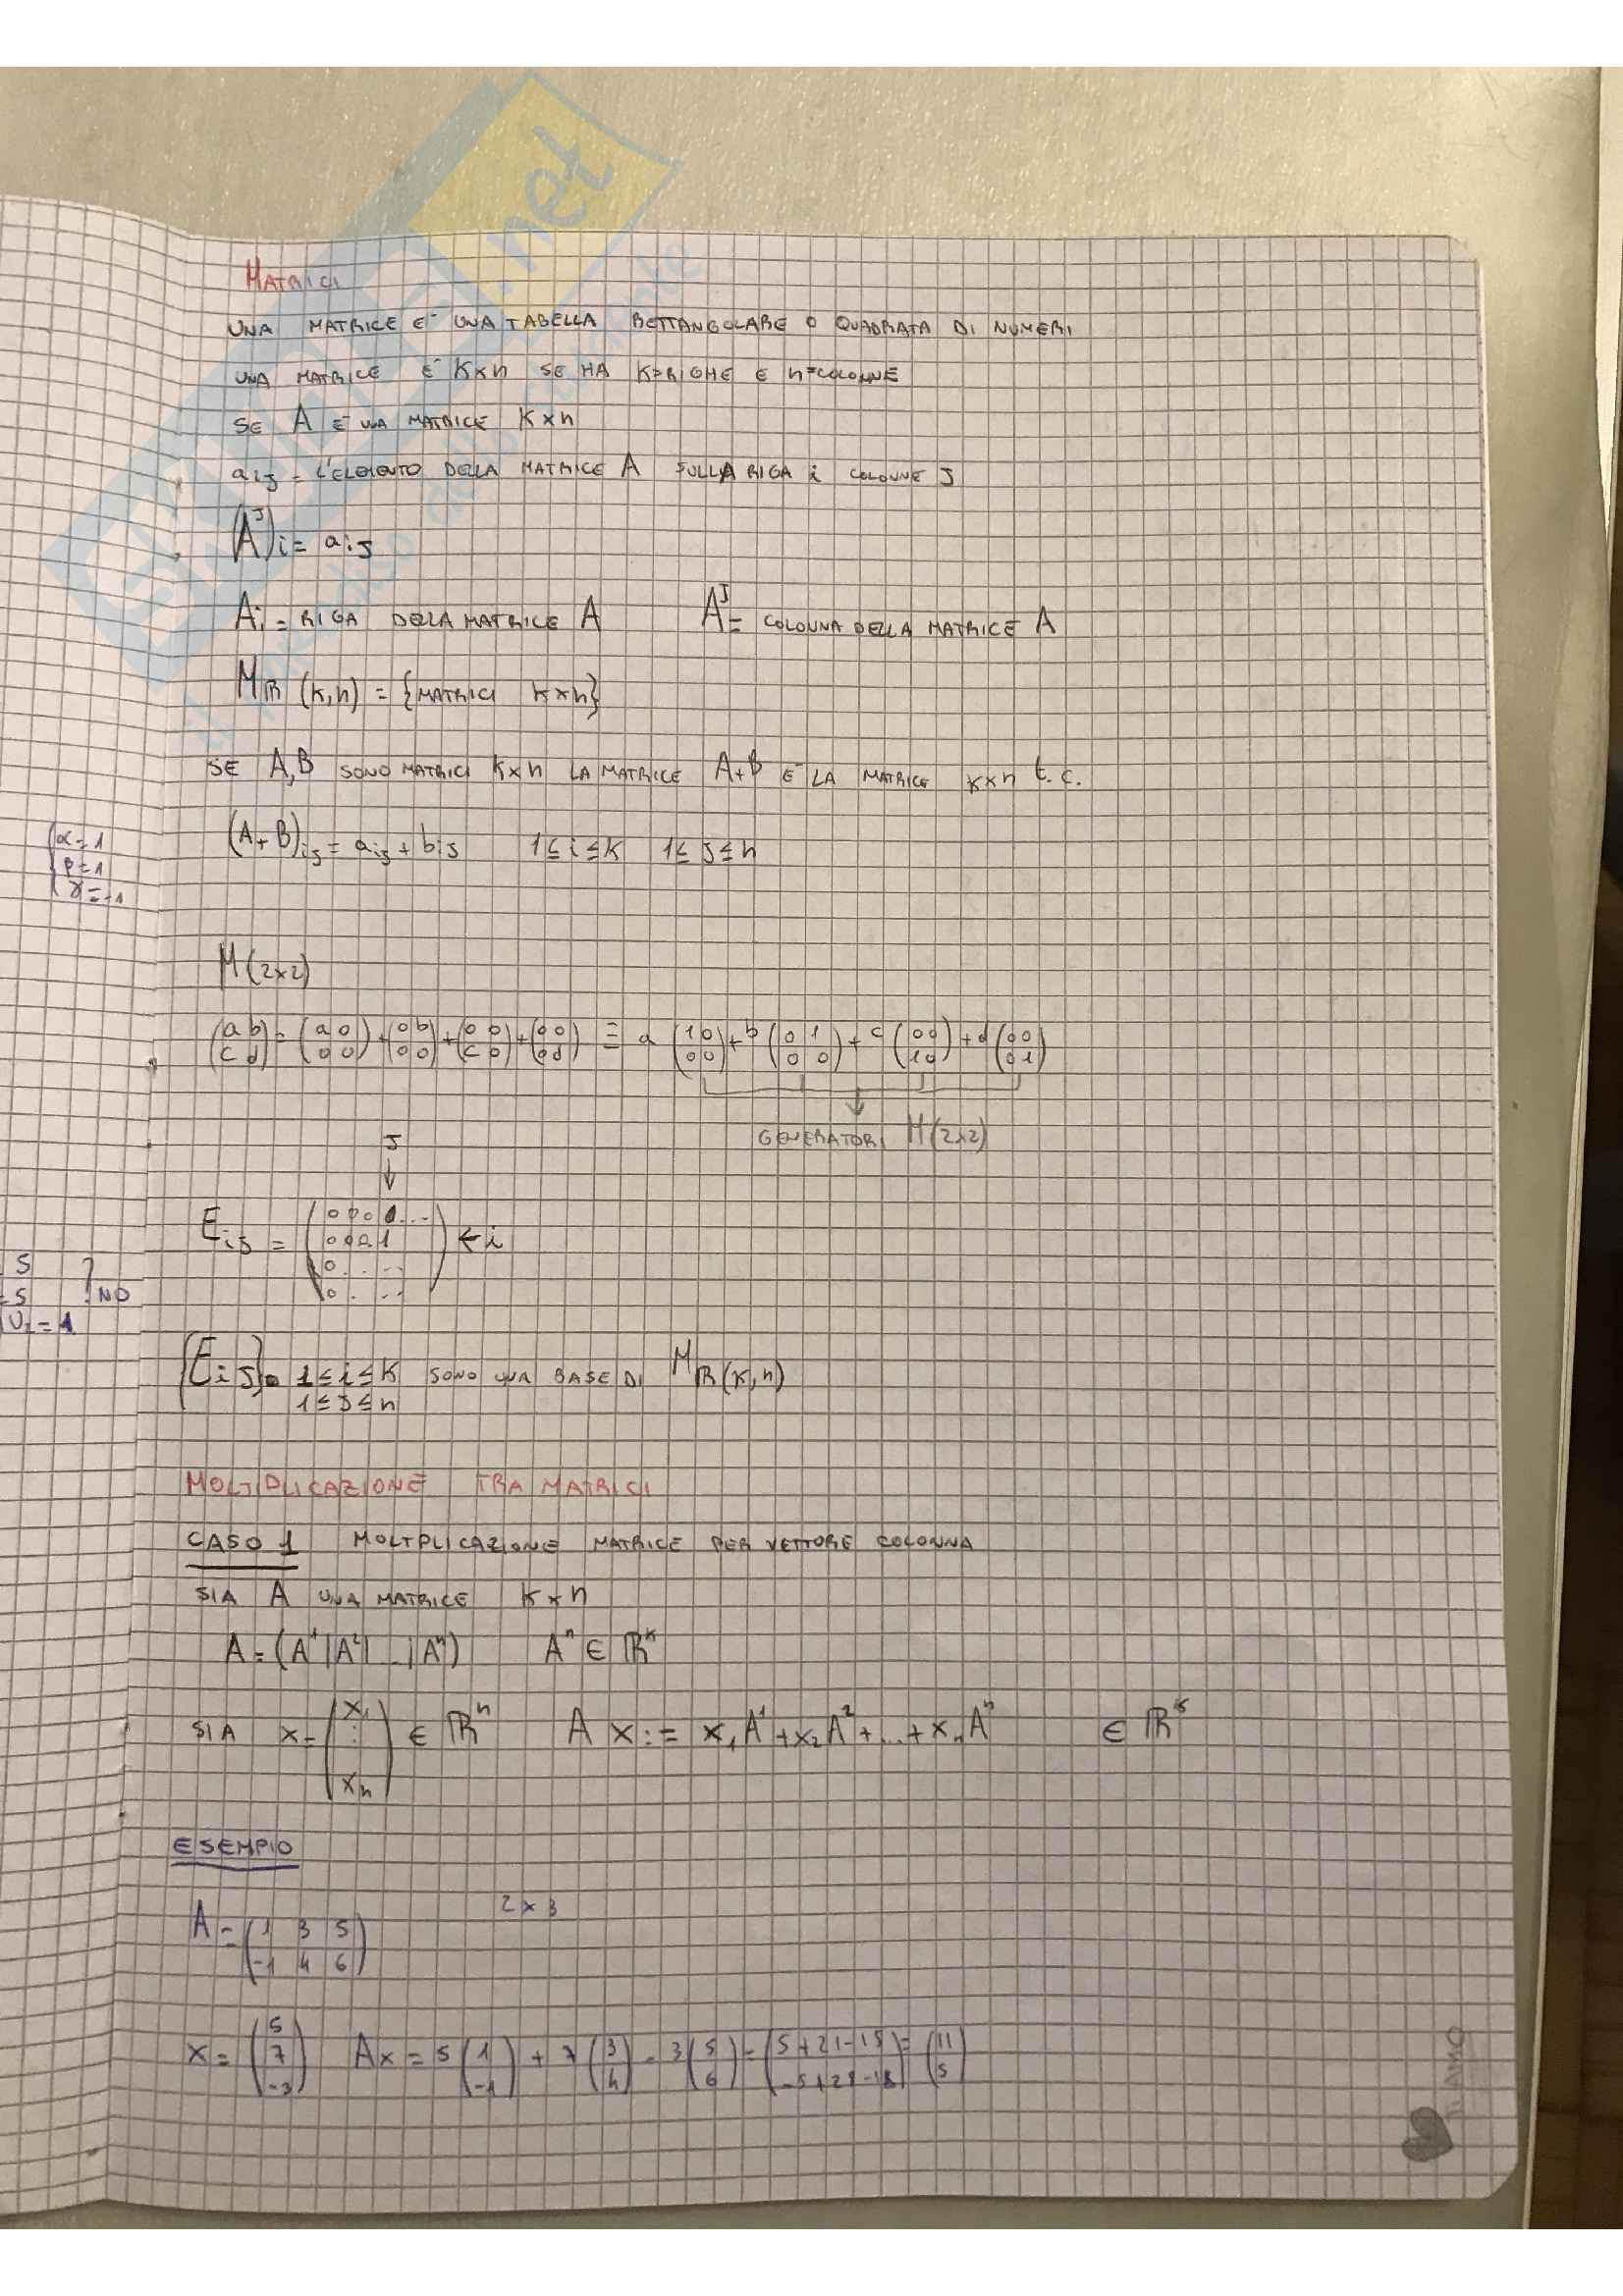 MATRICI
UNA MATRICE E' UNA TABELLA RETTANGOLARE O QUADRATA DI NUMERI
UNA MATRICE E' K×n SE HA K=RIGHE E n=COLONNE
SE A E' UNA MATRICE K×n
aij = L'ELEMENTO DELLA MATRICE A SULLA RIGA i COLONNE J
(A^J)i = aij
Ai = RIGA DELLA MATRICE A A^J = COLONNA DELLA MATRICE A
M_ℝ (K,n) = {MATRICI K×n}
SE A,B SONO MATRICI K×n LA MATRICE A+B E' LA MATRICE K×n t.c.
(A+B)ij = aij + bij 1≤i≤K 1≤J≤n
α=1
β=1
γ=-1
M(2×2)
(a b; c d) = (a 0; 0 0) + (0 b; 0 0) + (0 0; c 0) + (0 0; 0 d) = a (1 0; 0 0) + b (0 1; 0 0) + c (0 0; 1 0) + d (0 0; 0 1)
GENERATORI M(2×2)
J
↓
Eij = (0 0 0 0...; 0 0 0 1; 0 ....; 0 ...) ← i
5
=5 NO
U2=1
{Eij} 1≤i≤K SONO UNA BASE DI M_ℝ(K,n)
1≤J≤n
MOLTIPLICAZIONE TRA MATRICI
CASO 1 MOLTPLICAZIONE MATRICE PER VETTORE COLONNA
SIA A UNA MATRICE K×n
A = (A^1|A^2|...|A^n) A^n ∈ ℝ^K
SIA x = (x1 ⋮ xn) ∈ ℝ^n A x := x1A^1 + x2A^2 + ... + xnA^n ∈ ℝ^K
ESEMPIO
A = (1 3 5; -1 4 6) 2×3
x = (5; 7; -3) Ax = 5 (1; -1) + 7 (3; 4) - 3 (5; 6) = (5+21-15; -5+28-18) = (11; 5)
TI AMO